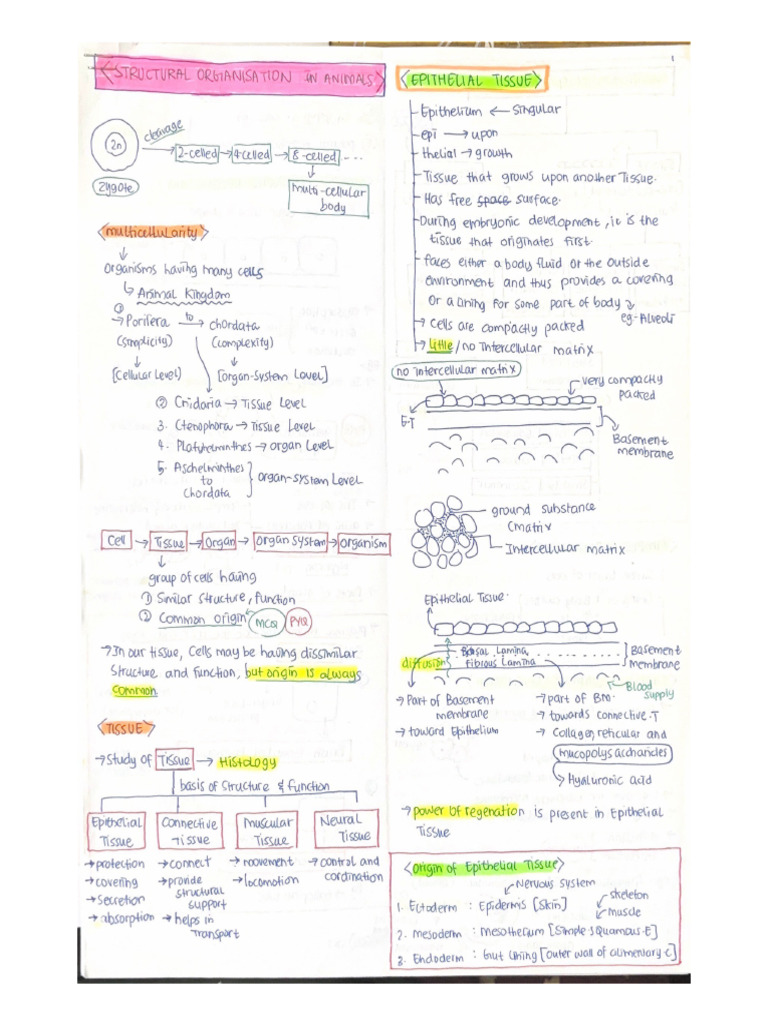 STRUCTURAL ORGANISATION IN ANIMALS
2n
cleavage
2-celled
4-celled
8-celled ...
zygote
multi-cellular
body
multicellularity
organisms having many cells
Animal Kingdom
①
Porifera to chordata
(simplicity) (complexity)
[Cellular Level) [organ-System Level]
② Cnidaria → Tissue Level
3. Ctenophora → Tissue Level
4. Platyhelminthes → organ Level
5. Aschelminthes
to
Chordata
organ-system Level
Cell → Tissue → Organ → organ system → organism
group of cells having
① Similar structure, function
② Common origin MCQ PYQ
→ In our tissue, Cells may be having dissimilar
structure and function, but origin is always
common
TISSUE
→ Study of Tissue → Histology
basis of structure & function
Epithelial
Tissue
Connective
Tissue
Muscular
Tissue
Neural
Tissue
→ protection
→ covering
→ Secretion
→ absorption
→ connect
→ provide
structural
support
→ helps in
transport
→ movement
→ locomotion
→ control and
cordination
1
EPITHELIAL TISSUE
Epithelium ← singular
epi → upon
thelial → growth
Tissue that grows upon another Tissue.
Has free space surface.
During embryonic development, it is the
tissue that originates first.
faces either a body fluid or the outside
environment and thus provides a covering
or a lining for some part of body
eg-Alveoli
→ Cells are compactly packed
→ little/no intercellular matrix
no intercellular matrix
very compactly
packed
E-T
Basement
membrane
ground substance
(matrix
Intercellular matrix
Epithelial Tissue.
Basal Lamina
Fibrous Lamina
Basement
membrane
diffusion
Blood
supply
→ Part of Basement
membrane
→ toward Epithelium
→ part of Bm.
→ towards connective-T
→ Collagen, reticular and
mucopolysaccharides
Hyaluronic acid
→ power of regenation is present in Epithelial
Tissue
origin of Epithelial Tissue
Nervous system
1. Ectoderm : Epidermis [Skin]
skeleton
muscle
2. mesoderm : mesothelium [Simple squamous-E]
3. Endoderm : Gut Lining [outer wall of alimentary-C]